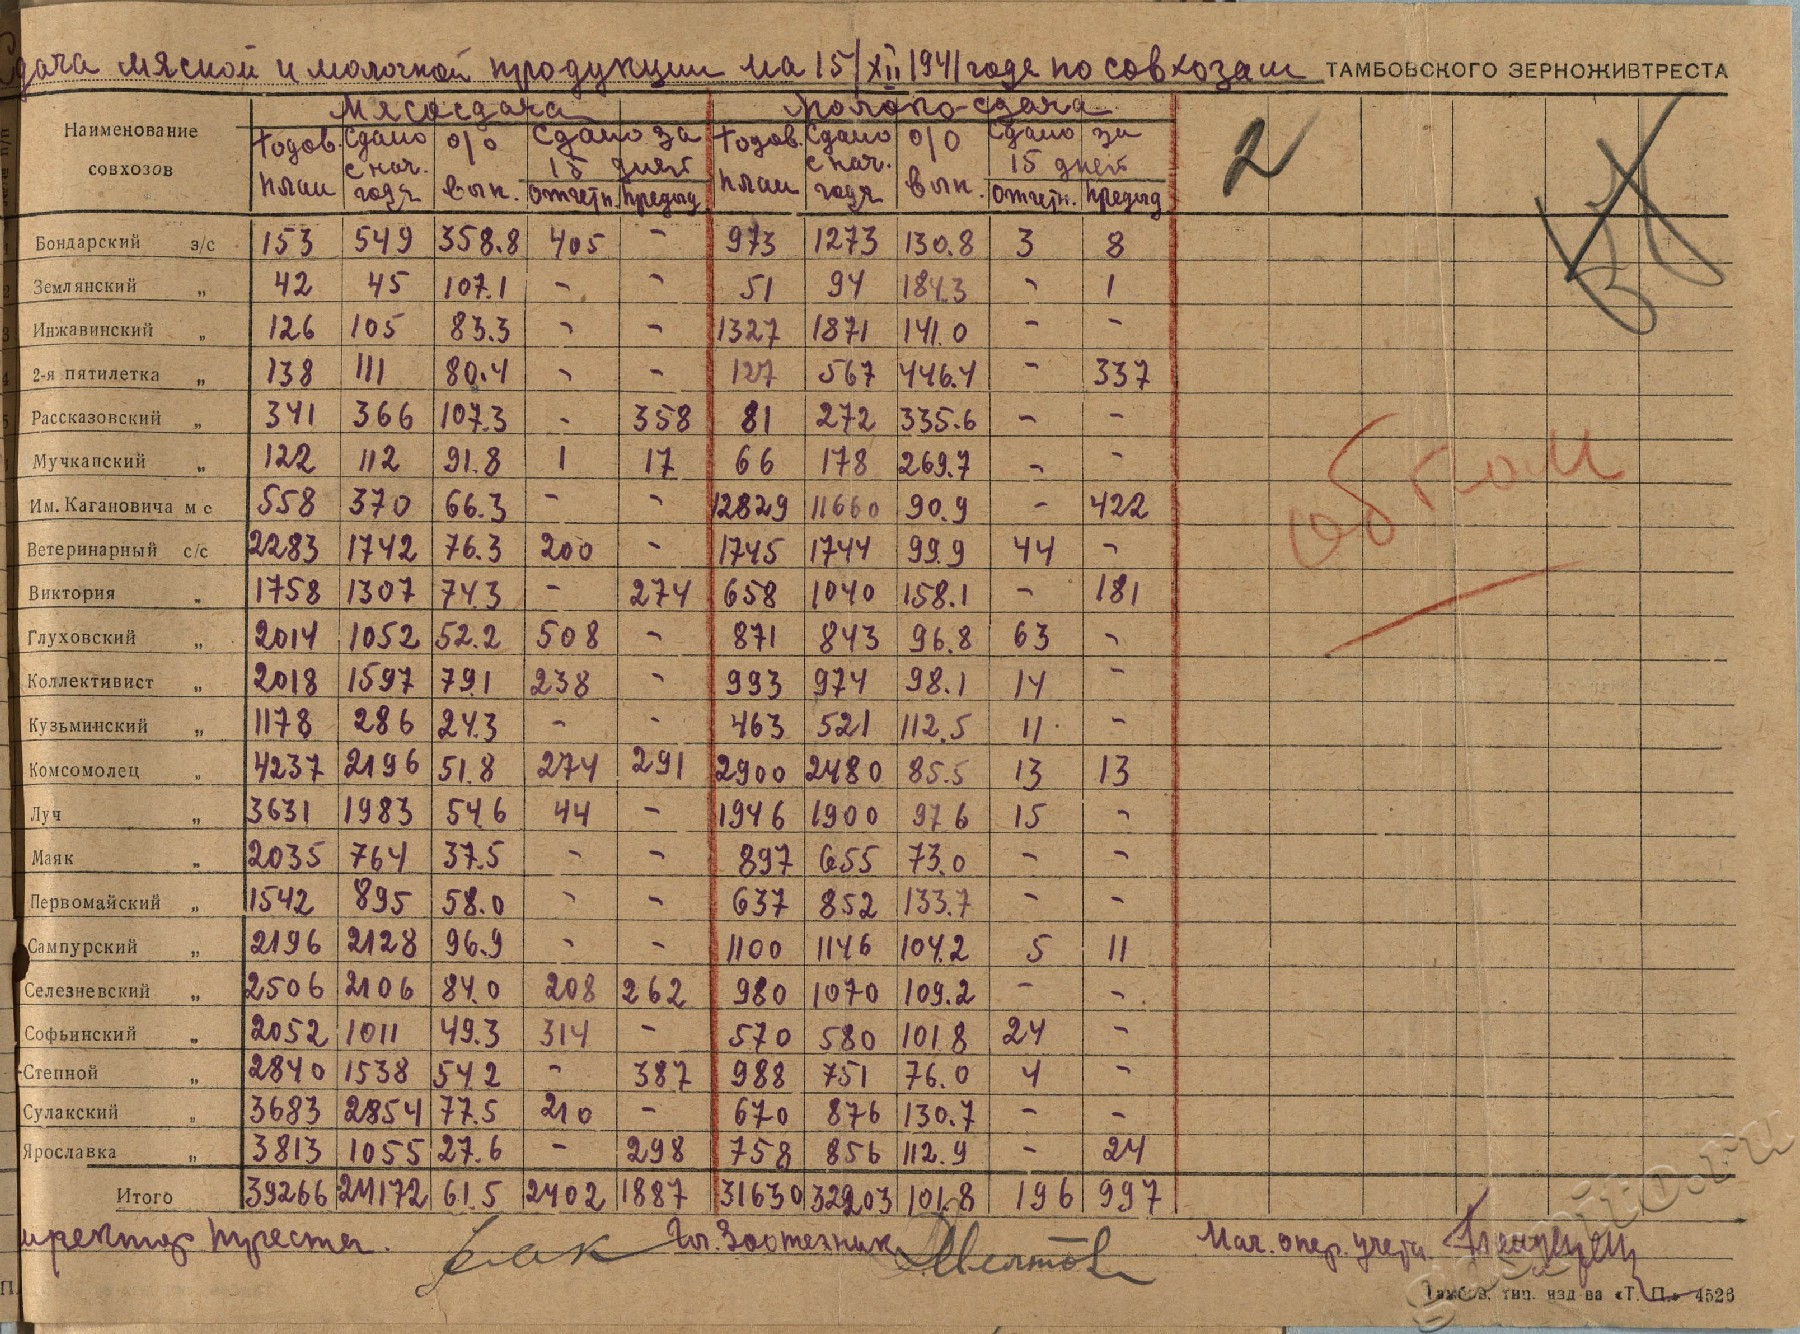 дача мясной и молочной продукции на 15/XII 1941 годе по совхозам ТАМБОВСКОГО ЗЕРНОЖИВТРЕСТА
Наименование совхозов Мясосдача Молоко-сдача
Годов. план Сдано с нач. года о/о вып. Сдано за 15 дней отчетн. предыд. Годов. план Сдано с нач. года о/о вып. Сдано за 15 дней отчетн. предыд.
2
Бондарский з/с 153 549 358.8 405 - 973 1273 130.8 3 8
Землянский „ 42 45 107.1 - - 51 94 184.3 - 1
Инжавинский „ 126 105 83.3 - - 1327 1871 141.0 - -
2-я пятилетка „ 138 111 80.4 - - 127 567 446.4 - 337
Рассказовский „ 341 366 107.3 - 358 81 272 335.6 - -
Мучкапский „ 122 112 91.8 1 17 66 178 269.7 - -
Им. Кагановича м с 558 370 66.3 - - 12829 11660 90.9 - 422
Ветеринарный с/с 2283 1742 76.3 200 - 1745 1744 99.9 44 -
Виктория „ 1758 1307 74.3 - 274 658 1040 158.1 - 181
Глуховский „ 2014 1052 52.2 508 - 871 843 96.8 63 -
Коллективист „ 2018 1597 79.1 238 - 993 974 98.1 14 -
Кузьминский „ 1178 286 24.3 - - 463 521 112.5 11 -
Комсомолец „ 4237 2196 51.8 274 291 2900 2480 85.5 13 13
Луч „ 3631 1983 54.6 44 - 1946 1900 97.6 15 -
Маяк „ 2035 764 37.5 - - 897 655 73.0 - -
Первомайский „ 1542 895 58.0 - - 637 852 133.7 - -
Сампурский „ 2196 2128 96.9 - - 1100 1146 104.2 5 11
Селезневский „ 2506 2106 84.0 208 262 980 1070 109.2 - -
Софьинский „ 2052 1011 49.3 314 - 570 580 101.8 24 -
Степной „ 2840 1538 54.2 - 387 988 751 76.0 4 -
Сулакский „ 3683 2854 77.5 210 - 670 876 130.7 - -
Ярославка „ 3813 1055 27.6 - 298 758 856 112.9 - 24
Итого 39266 24172 61.5 2402 1887 31630 32203 101.8 196 997
обком
иректор треста. Гл. Зоотехник Нач. опер. учета
Тамбов. тип. изд-ва «Т. П.» 4526
gaspito.ru